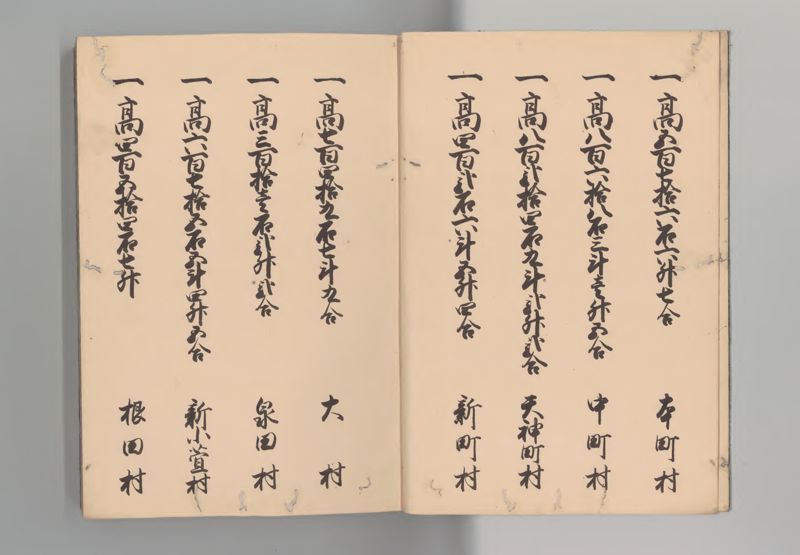 一高五百七拾六石六升七合 本町村
一高八百六拾八石三斗壱升五合 中町村
一高八百弐拾四石九斗弐升弐合 天神町村
一高四百弐石六斗五升四合 新町村
一高七百四拾九石七斗九合 大村
一高三百拾壱石弐升弐合 泉田村
一高六百七拾五石五斗四升五合 新小萱村
一高四百五拾四石七升 根田村